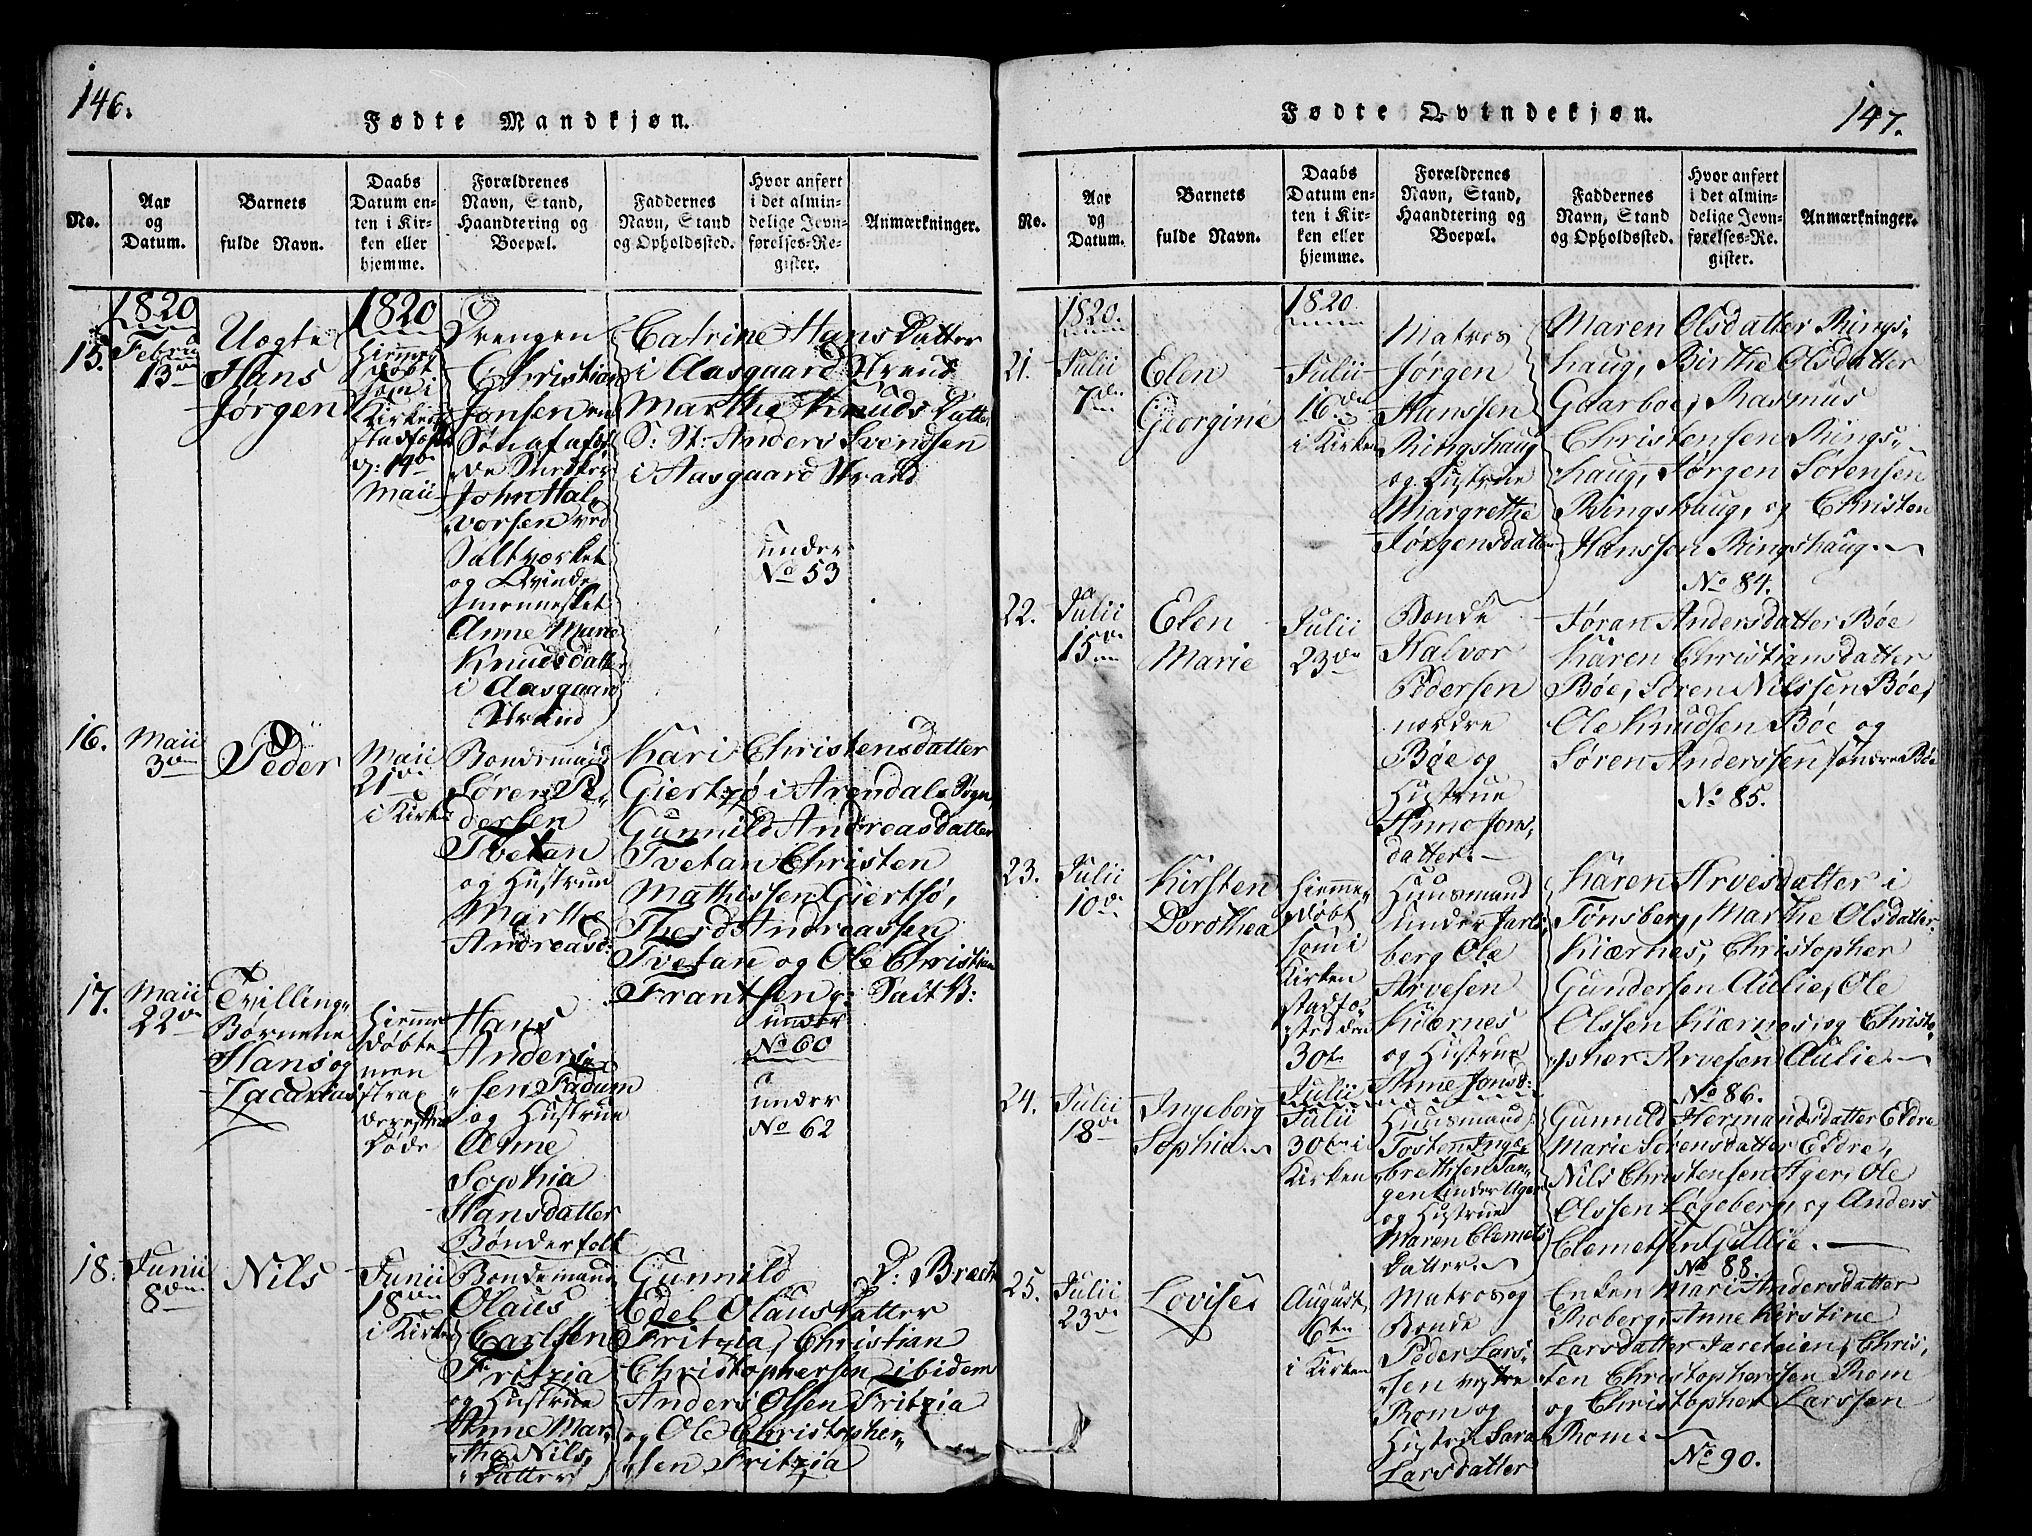 146.
Fødte Mandkjøn.
No.
Aar
og
Datum.
Barnets
fulde Navn.
Daabs
Datum en-
ten i Kir-
ken eller
hjemme.
Forældrenes
Navn, Stand,
Haandtering og
Boepæl.
Faddernes
Navn, Stand
og Opholdssted.
Hvor anført
i det almin-
delige Jevn-
førelses-Re-
gister.
Anmærkninger.
15.
1820
Febru
13de
Uægte
Hans
Jørgen
1820
hiemme
døbt
som i
Kirken
stadfæst
d: 14de
Maii
Drengen
Christian
Jonsen
John Hal-
vorsen ved
Saltværket
og Qvinde
mennesket
Anne Marie
Knudsdatter
i Aasgaard
Strand
Catrine Hans Datter
i Aasgaard Strand
Marthe Knuds Datter
S: St: Anders Svendsen
i Aasgaard Strand
under
No 53
16.
Maii
3de
Peder
Maii
21de
i Kirken
Bondemand
Søren Pe-
dersen
Tvetan
og Hustrue
Marthe
Andreasd:
Kari Christensdatter
Giertsø i Arendals Sogn,
Gunnild Andreasdatter
Tvetan Christen
Mathissen Giertsø,
Andreassen
Tvetan og Ole Christian
Frantsen v: Salt V:
under
No 60
17.
Maii
22de
Tvilling-
Børnene
Hans og
Zacarias
hiemme
døbte
men
strax
derefter
døde
Hans
Anders-
sen Fadum
og Hustrue
Anne
Sophia
Hansdatter
Bønderfolk
under
No 62
18.
Junii
8de
Nils
Junii
18de
i Kirken
Bondemand
Olaus
Carlsen
Fritzia
og Hustrue
Anne Mar-
tha Nils
Datter
Gunnild
Edel Olaus Datter
Fritzia, Christian
Christophersen ibidem
Anders Olsen Fritzia
og Ole Christopher-
sen Fritzia
147.
Fødte Qvindekjøn.
No.
Aar
og
Datum.
Barnets
fulde Navn.
Daabs
Datum en-
ten i Kir-
ken eller
hjemme.
Forældrenes
Navn, Stand,
Haandtering og
Boepæl.
Faddernes
Navn, Stand
og Opholdssted.
Hvor anført
i det almin-
delige Jevn-
førelses-Re-
gister.
Anmærkninger.
21.
1820.
Julii
7de
Elen
Georgine
1820
Julii
16de
i Kirken
Matros
Jørgen
Hanssen
Ringshaug
og Hustrue
Margrethe
Jørgensdatter
Maren Olsdatter Rings-
haug, Birthe Olsdatter
Gaarboe, Rasmus
Christensen Rings-
haug, Jørgen Sørensen
Ringshaug, og Christen
Hanssen Ringshaug.
No 84.
22.
Julii
15de
Elen
Marie
Julii
23de
Bonde
Halvor
Pedersen
nordre
Bøe og
Hustrue
Anne Jons-
datter.
Jøran Andersdatter Bøe
Karen Christiansdatter
Bøe, Søren Nilssen Bøe,
Ole Knudsen Bøe og
Søren Anderssen søndre Bøe
No 85.
23.
Julii
10de
Kirsten
Dorothea
hiemme-
døbt
som i
Kirken
stadfæ-
sted den
30te
Julii
Huusmand
under Jarls-
berg Ole
Arvesen
Kiærnes
og Hustrue
Anne Jonsd:
Karen Arvesdatter i
Tønsberg, Marthe Olsdatter
Kiærnes, Christopher
Gundersen Aulie, Ole
Olssen Kiærnes, og Christo-
pher Arvesen Aulie.
No 86.
24.
Julii
18de
Ingeborg
Sophia
Julii
30te i
Kirken
Huusmand
Tosten Inge-
brethsen Tan-
gen under Ager
og Hustrue
Maren Clemets
Datter.
Gunnild Hermandsdatter Eldre
Marie Sørensdatter Eldre,
Nils Christensen Ager, Ole
Olssen Løgeberg, og Anders
Clemetsen Gullie.
No 88.
25.
Julii
23de
Lovise
August
6te
i Kirken
Matros og
Bonde
Peder Lars-
sen vestre
Rom og
Hustrue Sara
Larsdatter
Enken Mari Andersdatter
Roberg, Anne Kirstine
Larsdatter Jareteien, Chris-
ten Christopherssen Rom
og Christopher Larssen
Rom.
No 90.